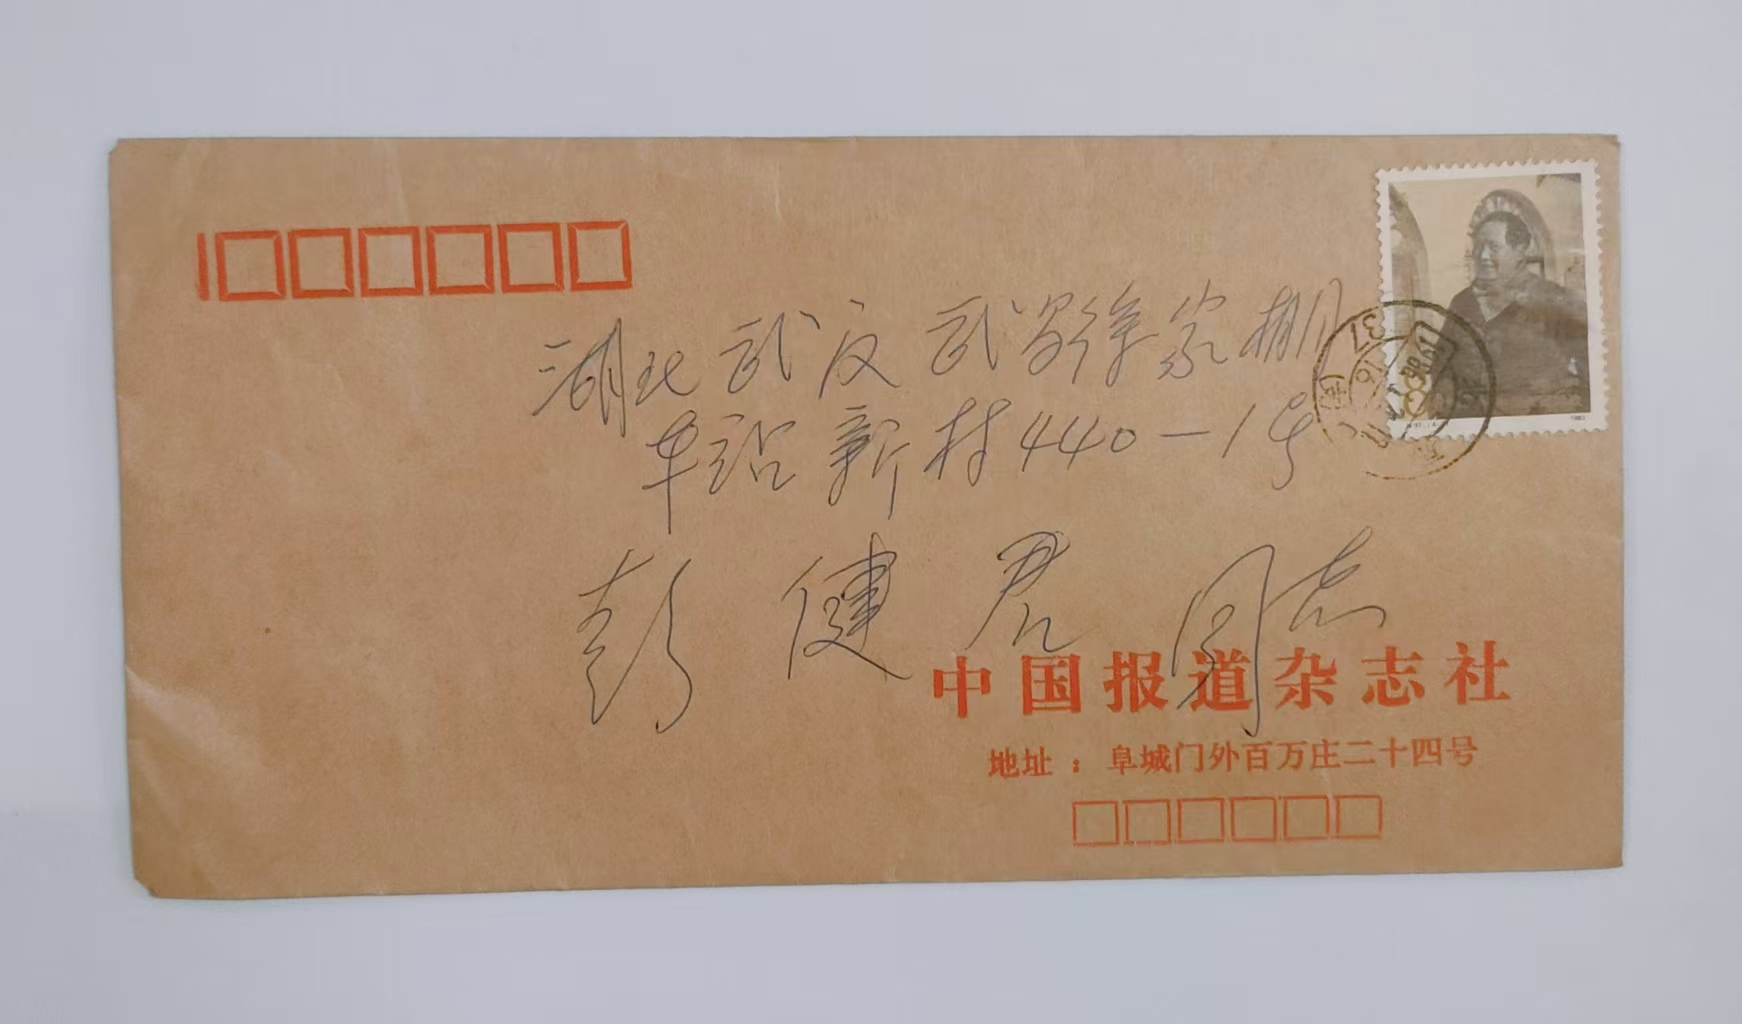 湖北武汉武昌徐家棚
车站新村440-1号
彭健君同志
中国报道杂志社
地址：阜城门外百万庄二十四号
1983